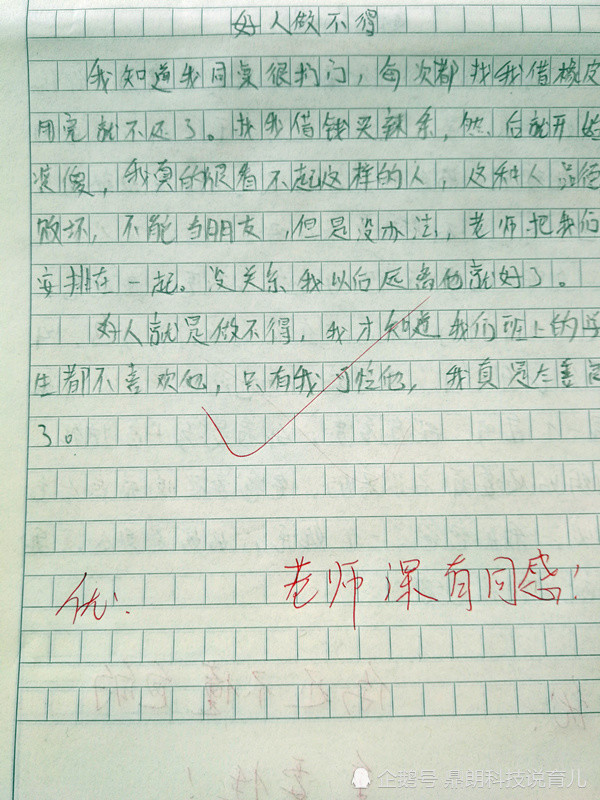 好人做不得
我知道我同桌很抠门，每次都找我借橡皮
用完就不还了。找我借钱买辣条，然后就开始
装傻，我真的很看不起这样的人，这种人品德
败坏，不能当朋友，但是没办法，老师把我们
安排在一起。没关系我以后远离他就好了。
好人就是做不得，我才知道我们班上的学
生都不喜欢他，只有我可怜他，我真是太善良
了。
优！
老师深有同感！
企鹅号 鼎朗科技说育儿